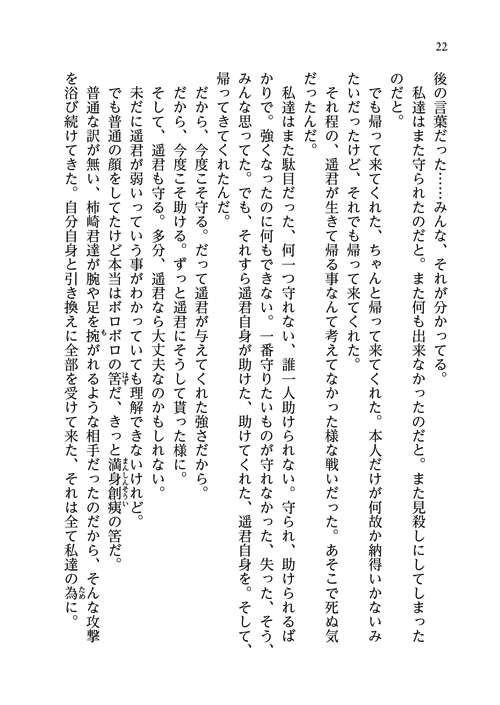 22
後の言葉だった……みんな、それが分かってる。
私達はまた守られたのだと。また何も出来なかったのだと。また見殺しにしてしまった
のだと。
でも帰って来てくれた、ちゃんと帰って来てくれた。本人だけが何故か納得いかないみ
たいだったけど、それでも帰って来てくれた。
それ程の、遥君が生きて帰る事なんて考えてなかった様な戦いだった。あそこで死ぬ気
だったんだ。
私達はまた駄目だった、何一つ守れない、誰一人助けられない。守られ、助けられるば
かりで。強くなったのに何もできない。一番守りたいものが守れなかった、失った、そう、
みんな思ってた。でも、それすら遥君自身が助けた、助けてくれた、遥君自身を。そして、
帰ってきてくれたんだ。
だから、今度こそ守る。だって遥君が与えてくれた強さだから。
だから、今度こそ助ける。ずっと遥君にそうして貰った様に。
そして、遥君も守る。多分、遥君なら大丈夫なのかもしれない。
未だに遥君が弱いっていう事がわかっていても理解できないけれど。
でも普通の顔をしてたけど本当はボロボロの筈だ、きっと満身創痍の筈だ。
普通な訳が無い、柿崎君達が腕や足を捥がれるような相手だったのだから、そんな攻撃
を浴び続けてきた。自分自身と引き換えに全部を受けて来た、それは全て私達の為に。